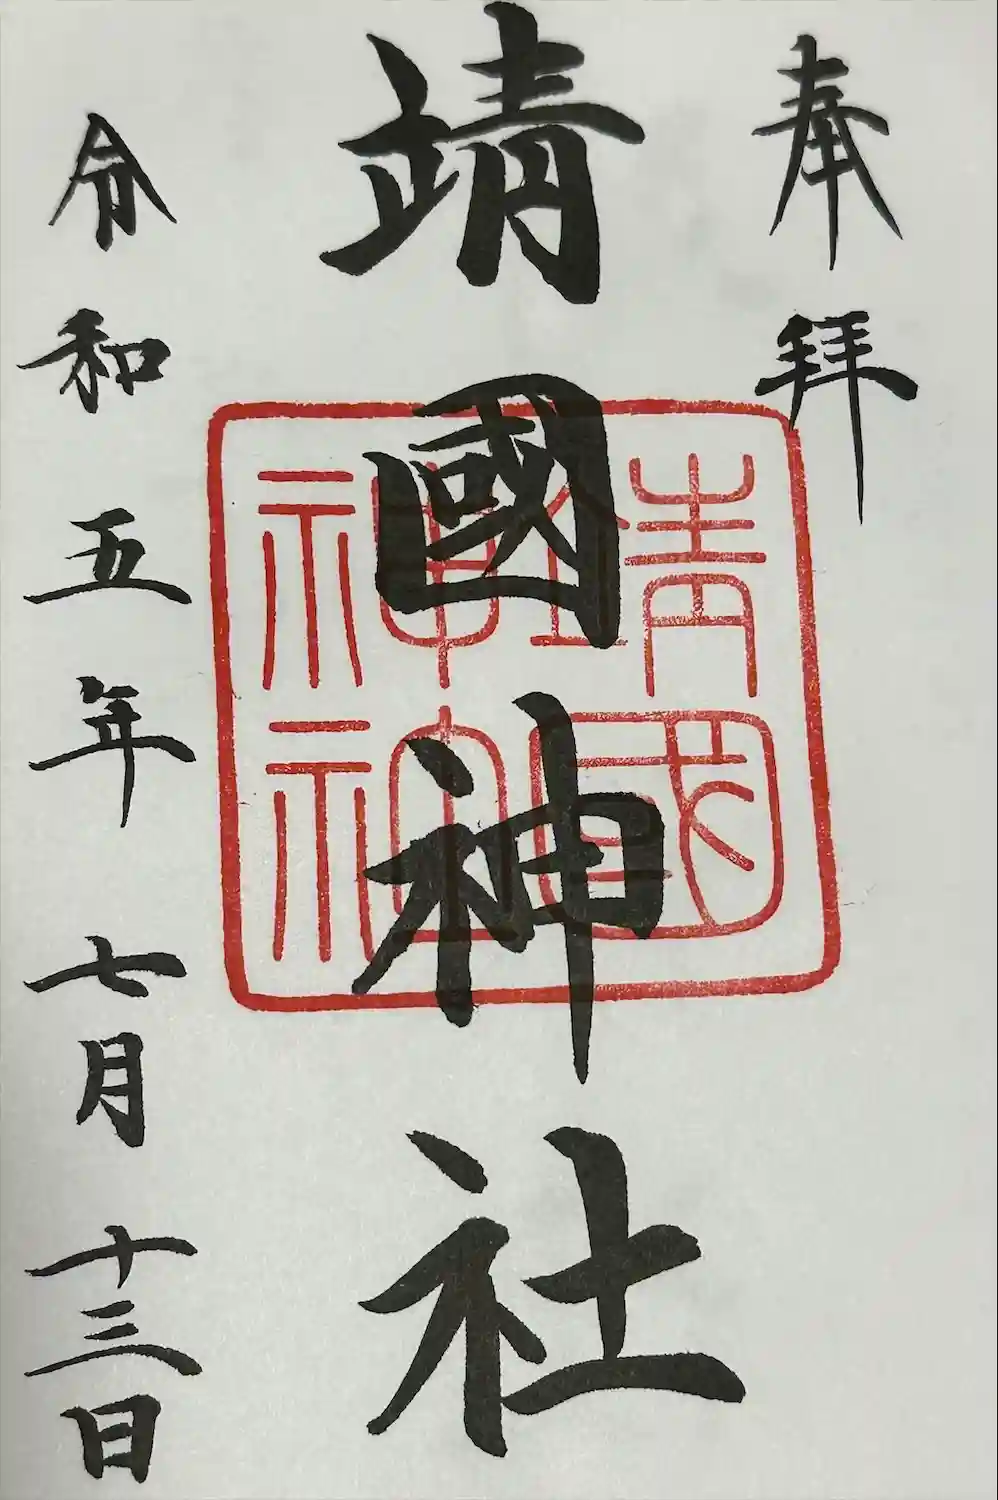 奉拝
靖國神社
靖國
神社
令和五年七月十三日